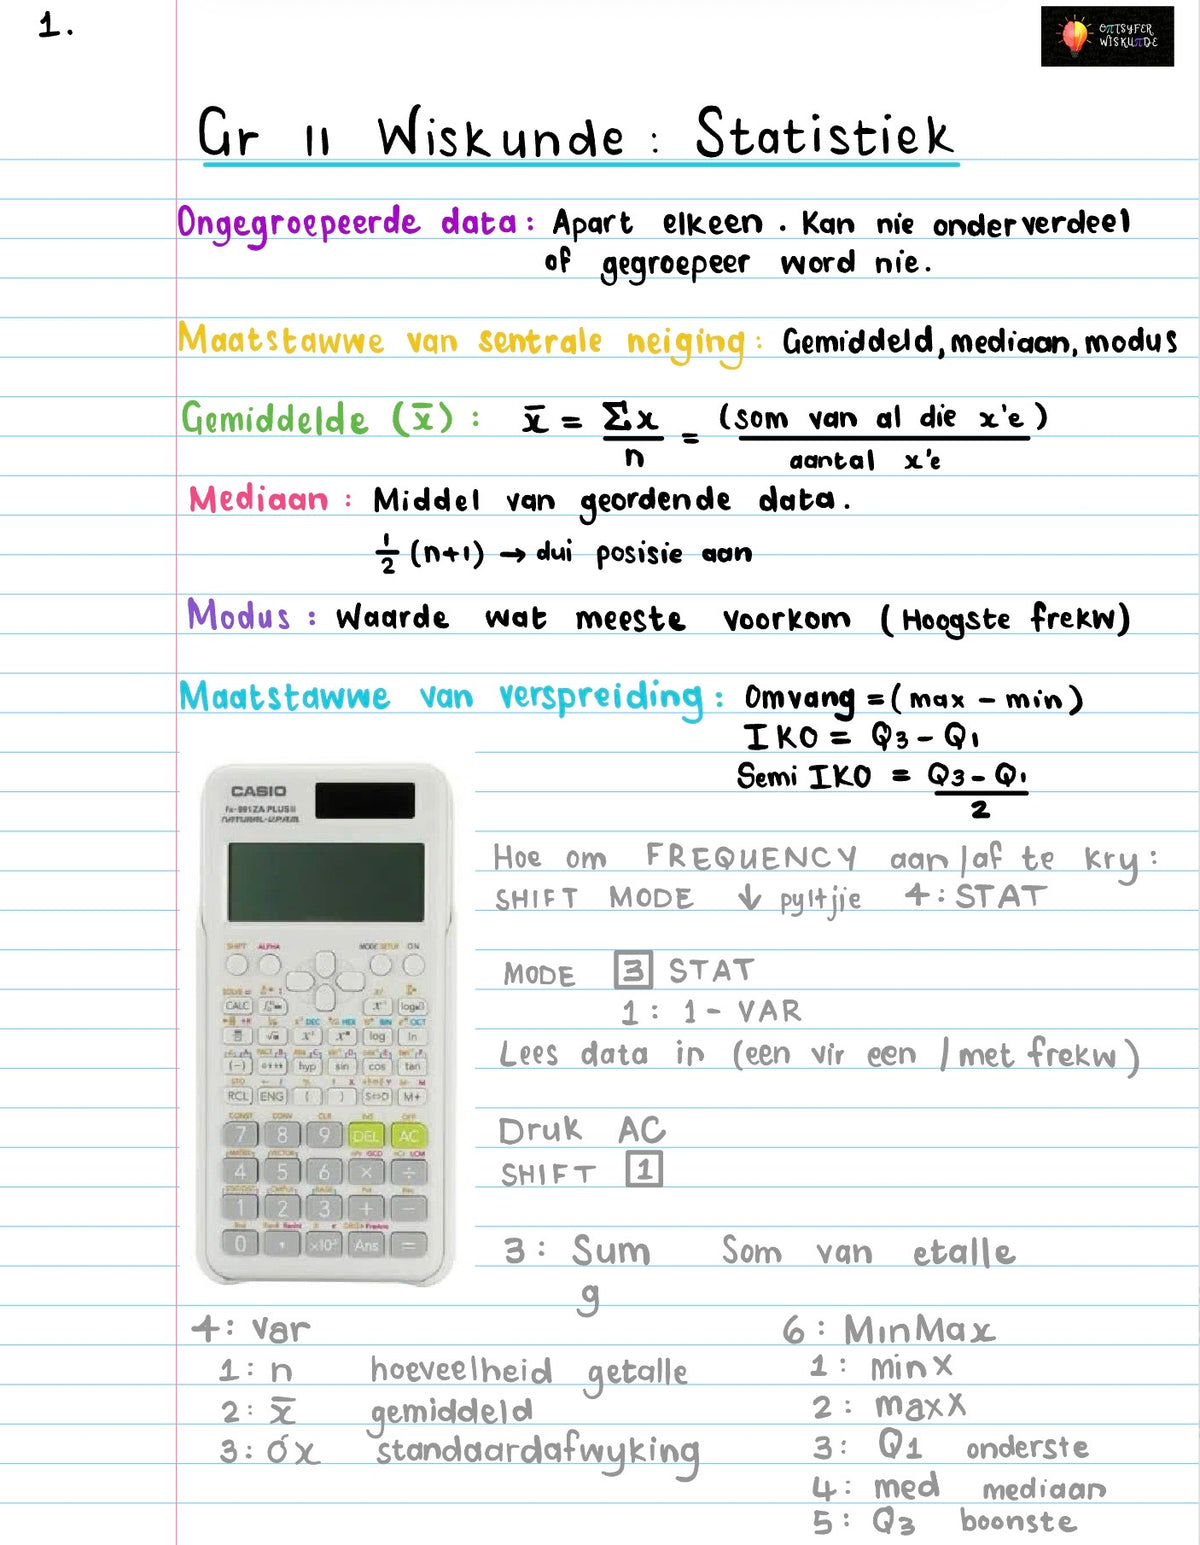 1.
ONTSYFER
WISKUNDE
Gr 11 Wiskunde : Statistiek
Ongegroepeerde data : Apart elkeen . Kan nie onderverdeel
of gegroepeer word nie.
Maatstawwe van sentrale neiging : Gemiddeld, mediaan, modus
Gemiddelde (x̄) : x̄ = Σx / n = (som van al die x'e) / aantal x'e
Mediaan : Middel van geordende data.
½ (n+1) → dui posisie aan
Modus : Waarde wat meeste voorkom (Hoogste frekw)
Maatstawwe van verspreiding : Omvang = (max – min)
IKO = Q3 – Q1
Semi IKO = Q3 – Q1 / 2
CASIO
fx-991ZA PLUS II
NATURAL-V.P.A.M.
Hoe om FREQUENCY aan/af te kry :
SHIFT MODE ↓ pyltjie 4 : STAT
MODE 3 STAT
1 : 1 - VAR
Lees data in (een vir een / met frekw)
Druk AC
SHIFT 1
SHIFT ALPHA MODE SETUP ON
CALC x⁻¹ log
log ln
(–) hyp sin cos tan
RCL ENG ( ) S⇔D M+
7 8 9 DEL AC
4 5 6 × ÷
1 2 3 + −
0 , ×10ˣ Ans =
3 : Sum Som van etalle
g
4 : Var
1 : n hoeveelheid getalle
2 : x̄ gemiddeld
3 : σx standaardafwyking
6 : MinMax
1 : minX
2 : maxX
3 : Q1 onderste
4 : med mediaan
5 : Q3 boonste